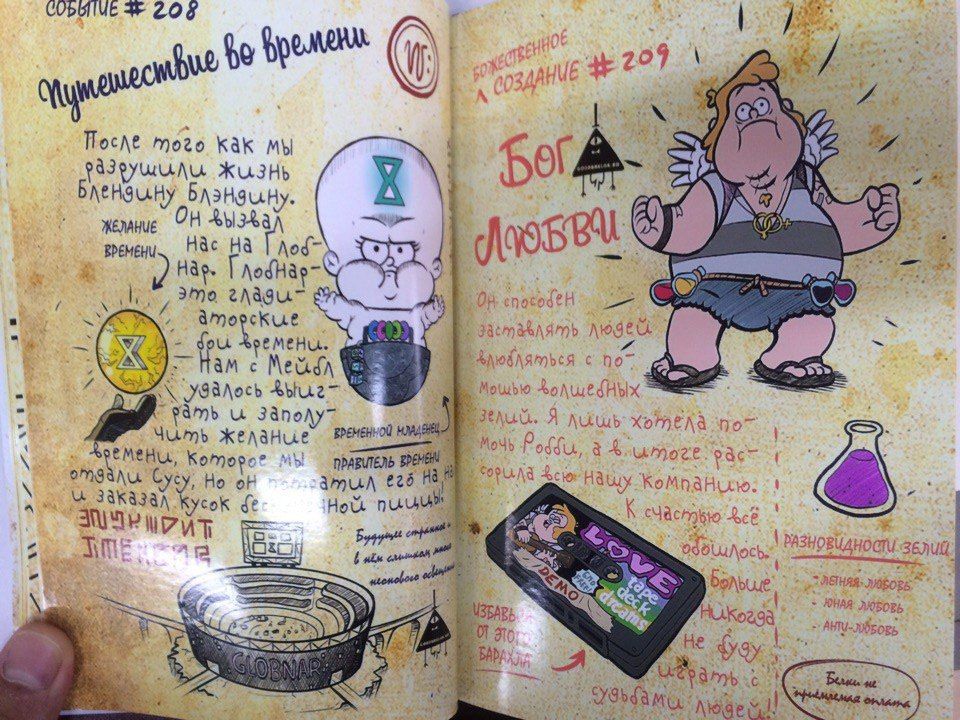 СОБЫТИЕ # 208
Путешествие во времени
После того как мы
разрушили жизнь
Блендину Блэндину.
Он вызвал
нас на Глоб-
нар. Глобнар-
это глади-
аторские
бои времени.
Нам с Мейбл
удалось выиг-
рать и заполу-
чить желание
времени, которое мы
отдали Сусу, но он потратил его на
и заказал кусок пиццы!
ЖЕЛАНИЕ
ВРЕМЕНИ
ВРЕМЕННОЙ МЛАДЕНЕЦ
ПРАВИТЕЛЬ ВРЕМЕНИ
Будущее странное -
в нём слишком много
неонового освещения
GLOBNAR
БОЖЕСТВЕННОЕ
СОЗДАНИЕ # 209
БОГ
ЛЮБВИ
Он способен
заставлять людей
влюбляться с по-
мощью волшебных
зелий. Я лишь хотела по-
мочь Робби, а в итоге рас-
сорила всю нашу компанию.
К счастью всё
обошлось.
Больше
никогда
не буду
играть с
судьбами людей!!
LOVE
tape
deck
dreams
DEMO
ИЗБАВЬСЯ
ОТ ЭТОГО
БАРАХЛА
РАЗНОВИДНОСТИ ЗЕЛИЙ
- ЛЕТНЯЯ ЛЮБОВЬ
- ЮНАЯ ЛЮБОВЬ
- АНТИ-ЛЮБОВЬ
Белки не
приемлемая оплата